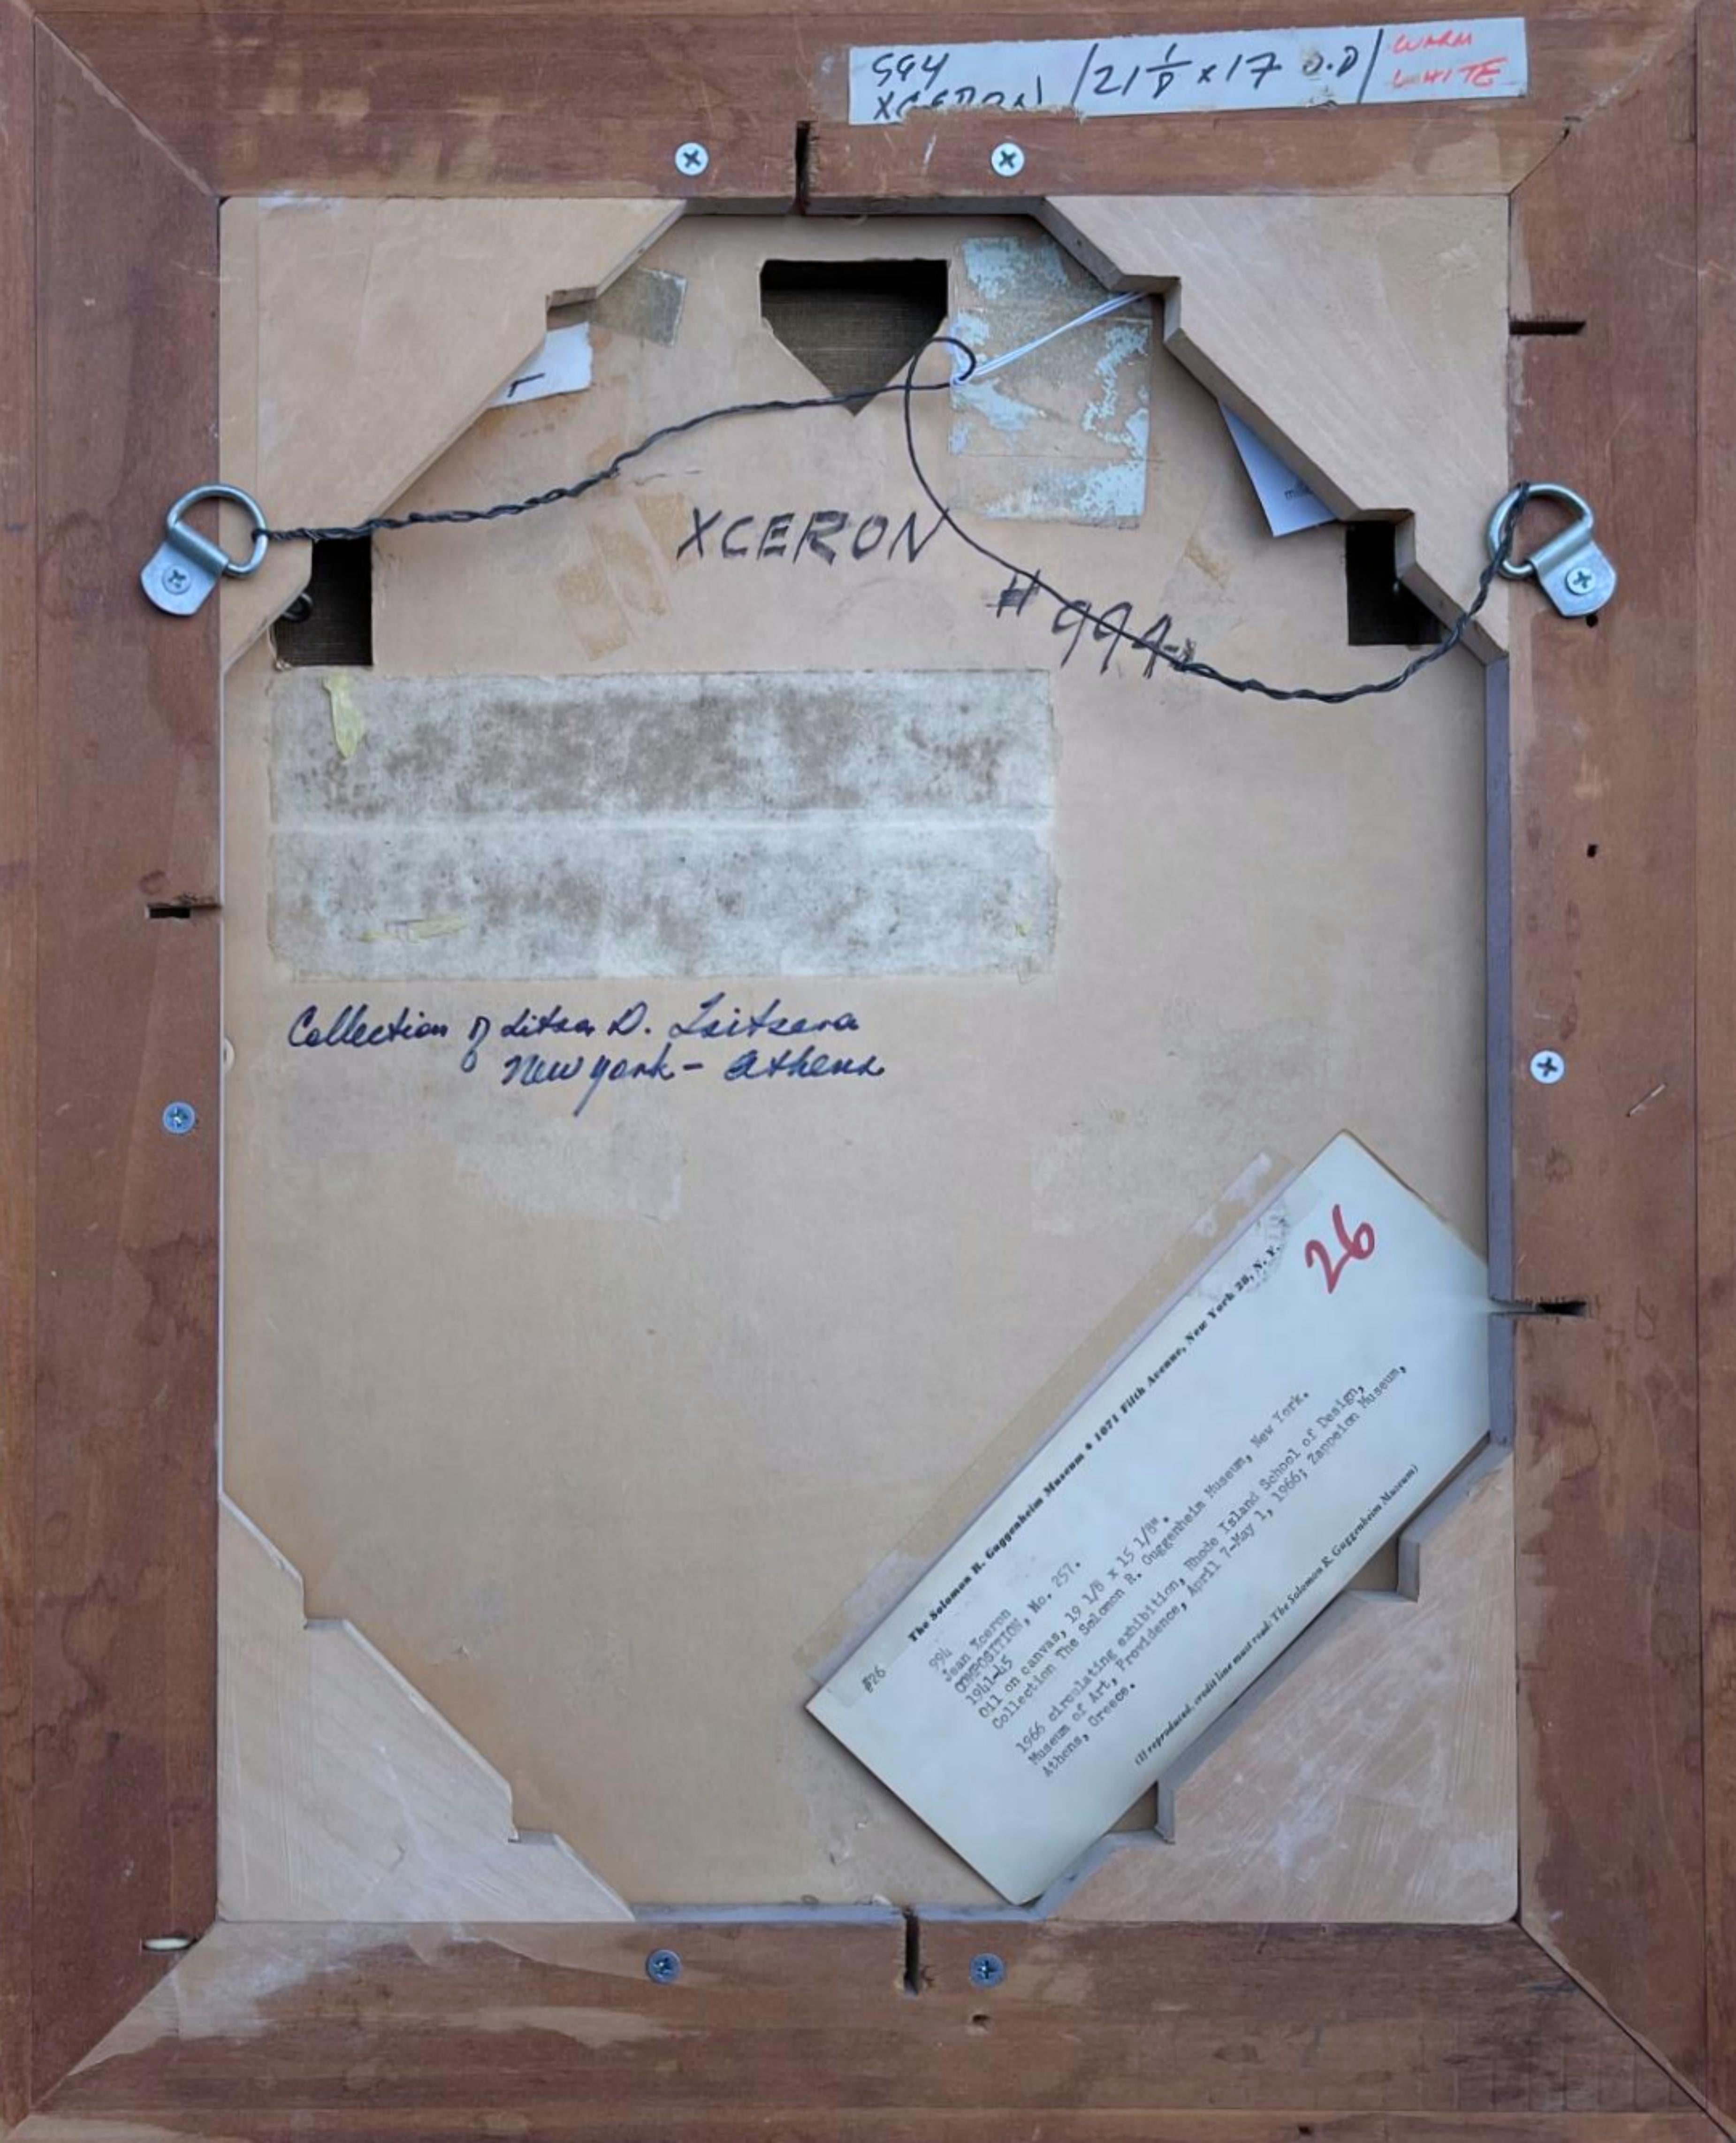 994
XCERON / 21 1/8 x 17 O.D /
WARM
WHITE
XCERON
#994
Collection of Litsa D. Tsitsera
New York - Athens
26
The Solomon R. Guggenheim Museum • 1071 Fifth Avenue, New York 28, N. Y.
#26
994
Jean Xceron
COMPOSITION, No. 257.
1941-45
Oil on canvas, 19 1/8 x 15 1/8".
Collection The Solomon R. Guggenheim Museum, New York.
1966 circulating exhibition, Rhode Island School of Design,
Museum of Art, Providence, April 7-May 1, 1966; Zappeion Museum,
Athens, Greece.
(If reproduced, credit line must read: The Solomon R. Guggenheim Museum)